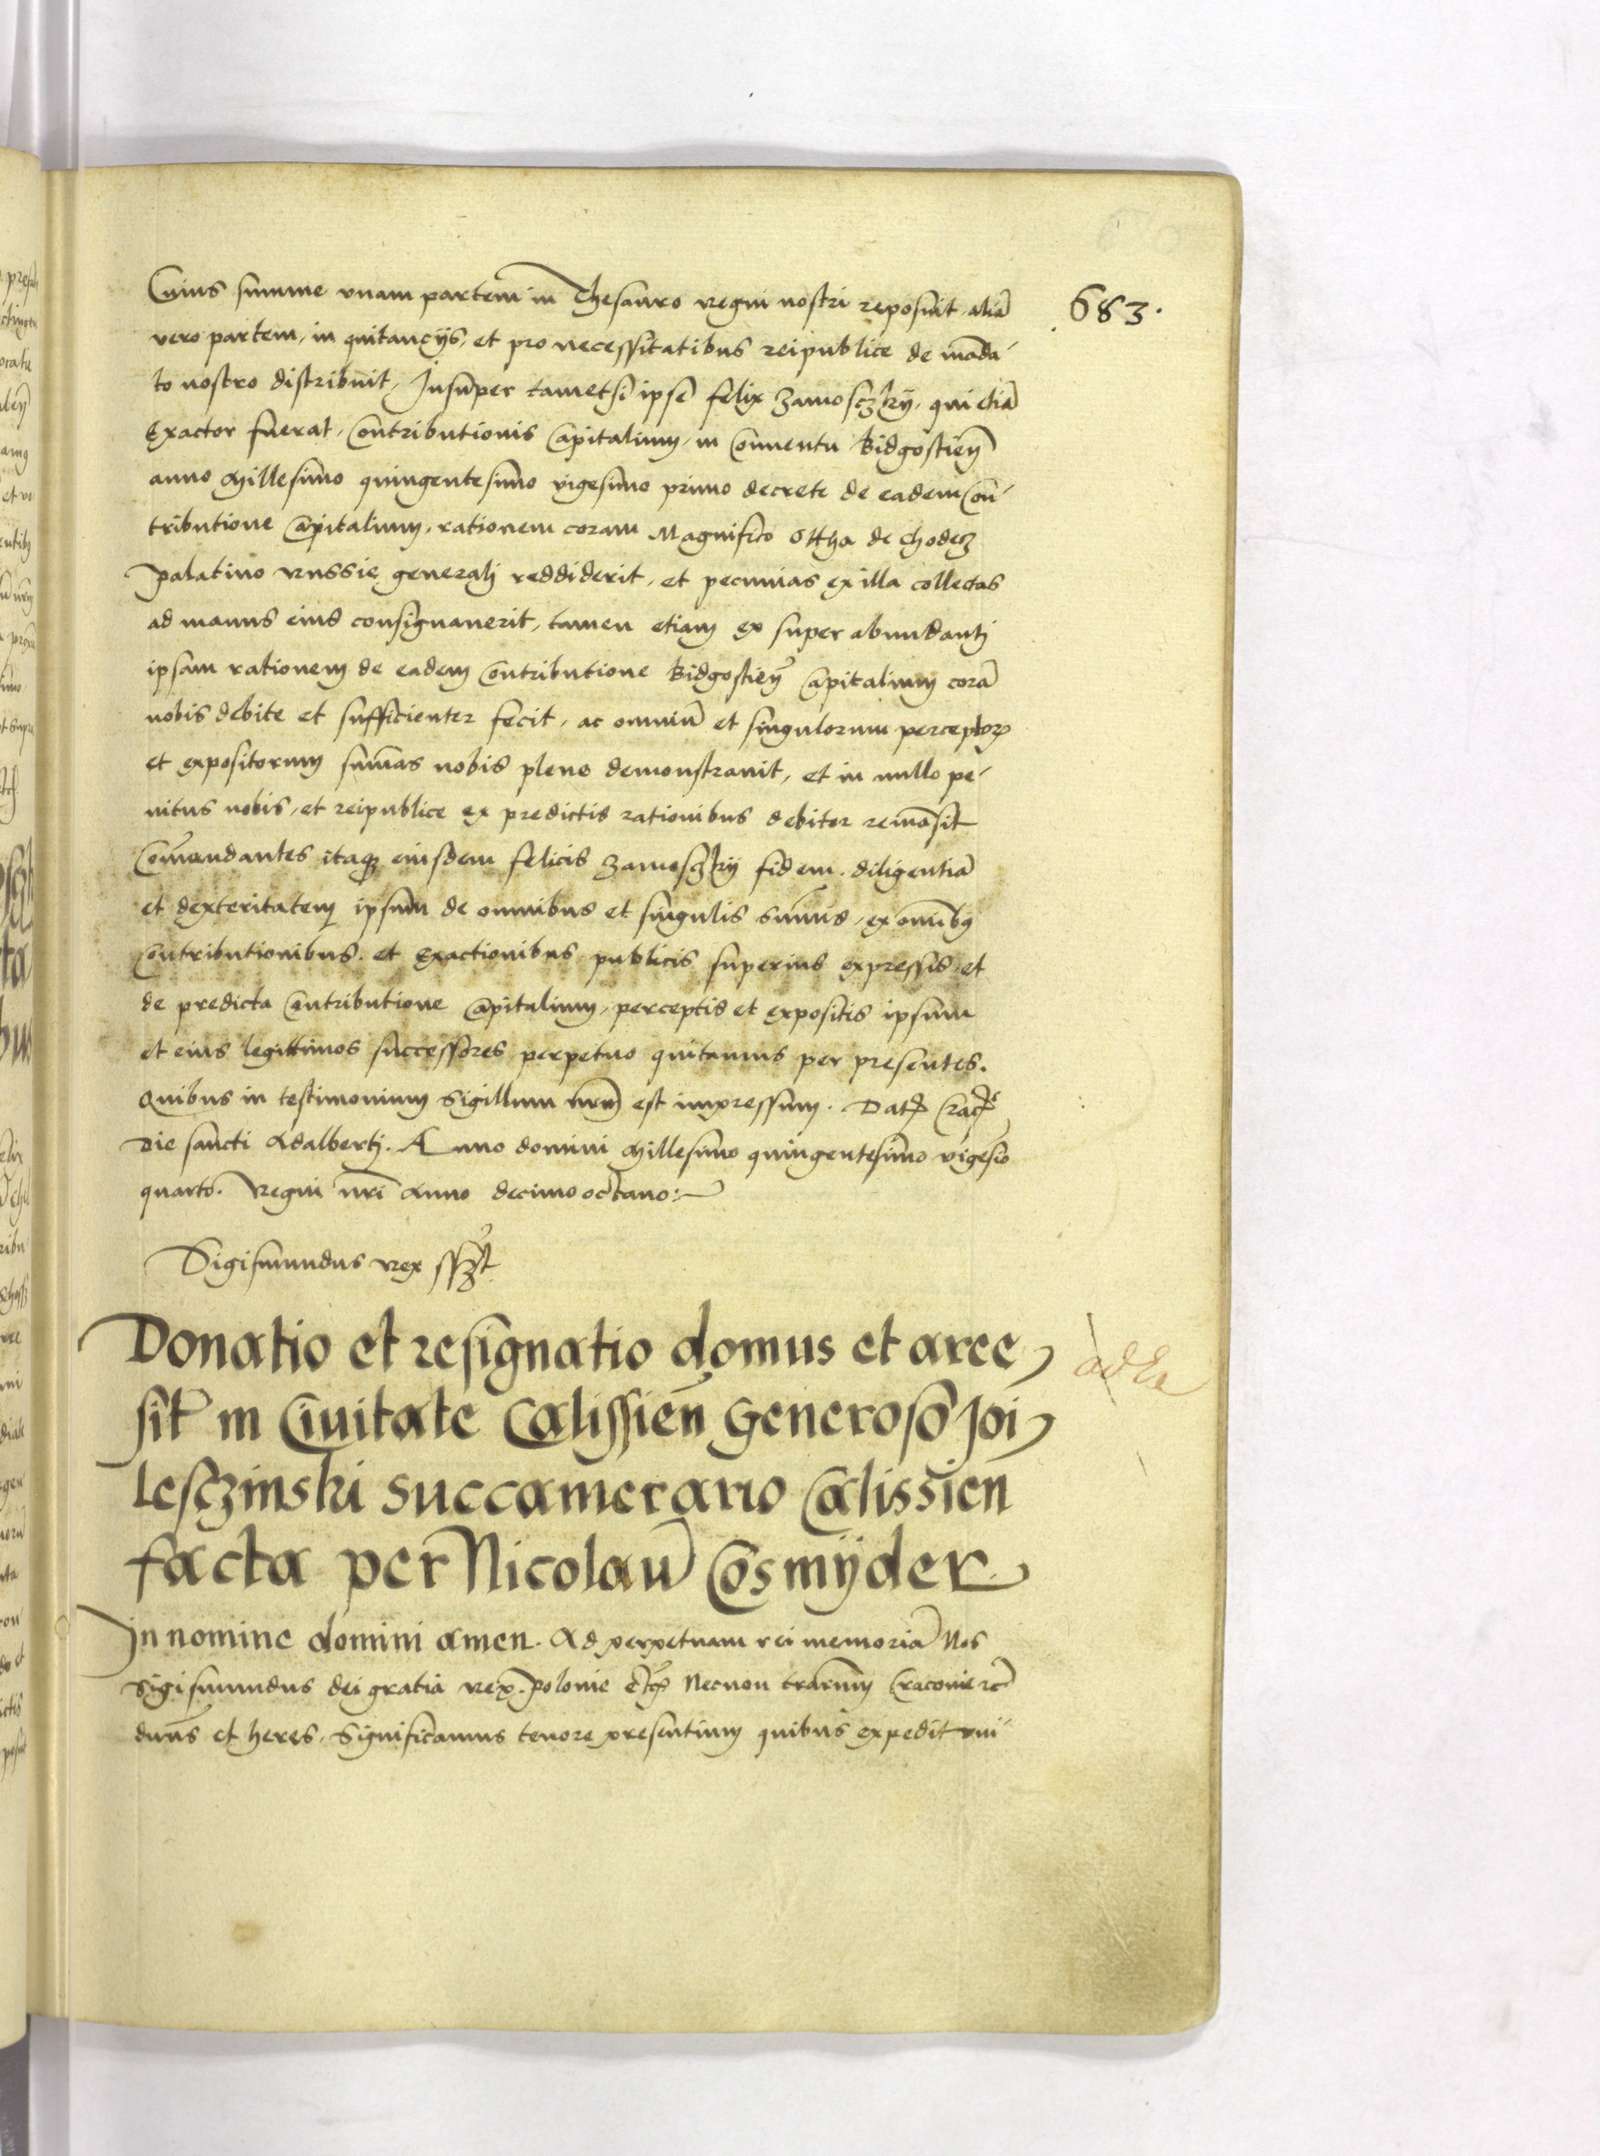 683.
Cuius summe vnam partem in Thesauro regni nostri reposuit, aliã
vero partem, in quitancijs, et pro necessitatibus reipublice de mãda-
to nostro distribuit, Insuper tametsi ipse felix Zamosczky, qui etiã
Exactor fuerat, Contributionis Capitalium, in Conuentu Bidgostień
anno Millesimo quingentesimo vigesimo primo decrete de eadem Con-
tributione Capitalium, rationem coram Magnifico Ottha de Chodecz
palatino russie generalj reddiderit, et pecunias ex illa collectas
ad manus eius consignauerit, tamen etiam ex super abundantj
ipsam rationem de eadem Contributione Bidgostień Capitalium corã
nobis debite et sufficienter fecit, ac omniũ et singulorum perceptoꝝ
et expositorum sum̃as nobis plene demonstrauit, et in nullo pe-
nitus nobis, et reipublice ex predictis rationibus debitor remãsit
Com̃endantes itaqꝫ eiusdem felicis Zamosczky fidem, diligentiã
et dexteritatem ipsum de omnibus et singulis sum̃is, ex omĩbꝰ
Contributionibus, et exactionibus publicis superius expressis, et
de predicta Contributione Capitalium, perceptis et expositis ipsum
et eius legittimos successores perpetuo quitamus per presentes.
Quibus in testimonium Sigillum nrm̃ est impressum. Datꝭ Cracꝭ
Die sancti Adalbertj. Anno domini Millesimo quingentesimo vigesiõ
quarto. Regni nrĩ Anno decimo octauo:
Sigismundus rex sszt
Donatio et resignatio domus et aree
sit̃ in Ciuitate Calissień Generoso Joĩ
Lesczinski succamerario Calissień
facta per Nicolaũ Cosmyder
ad
In nomine domini amen. Ad perpetuam rei memoriã Nos
Sigismundus dei gratia rex polonie etcꝭ Necnon trarum̃ Cracouie etc̃
dun̄s et heres, Significamus tenore presentium quibus expedit vni-